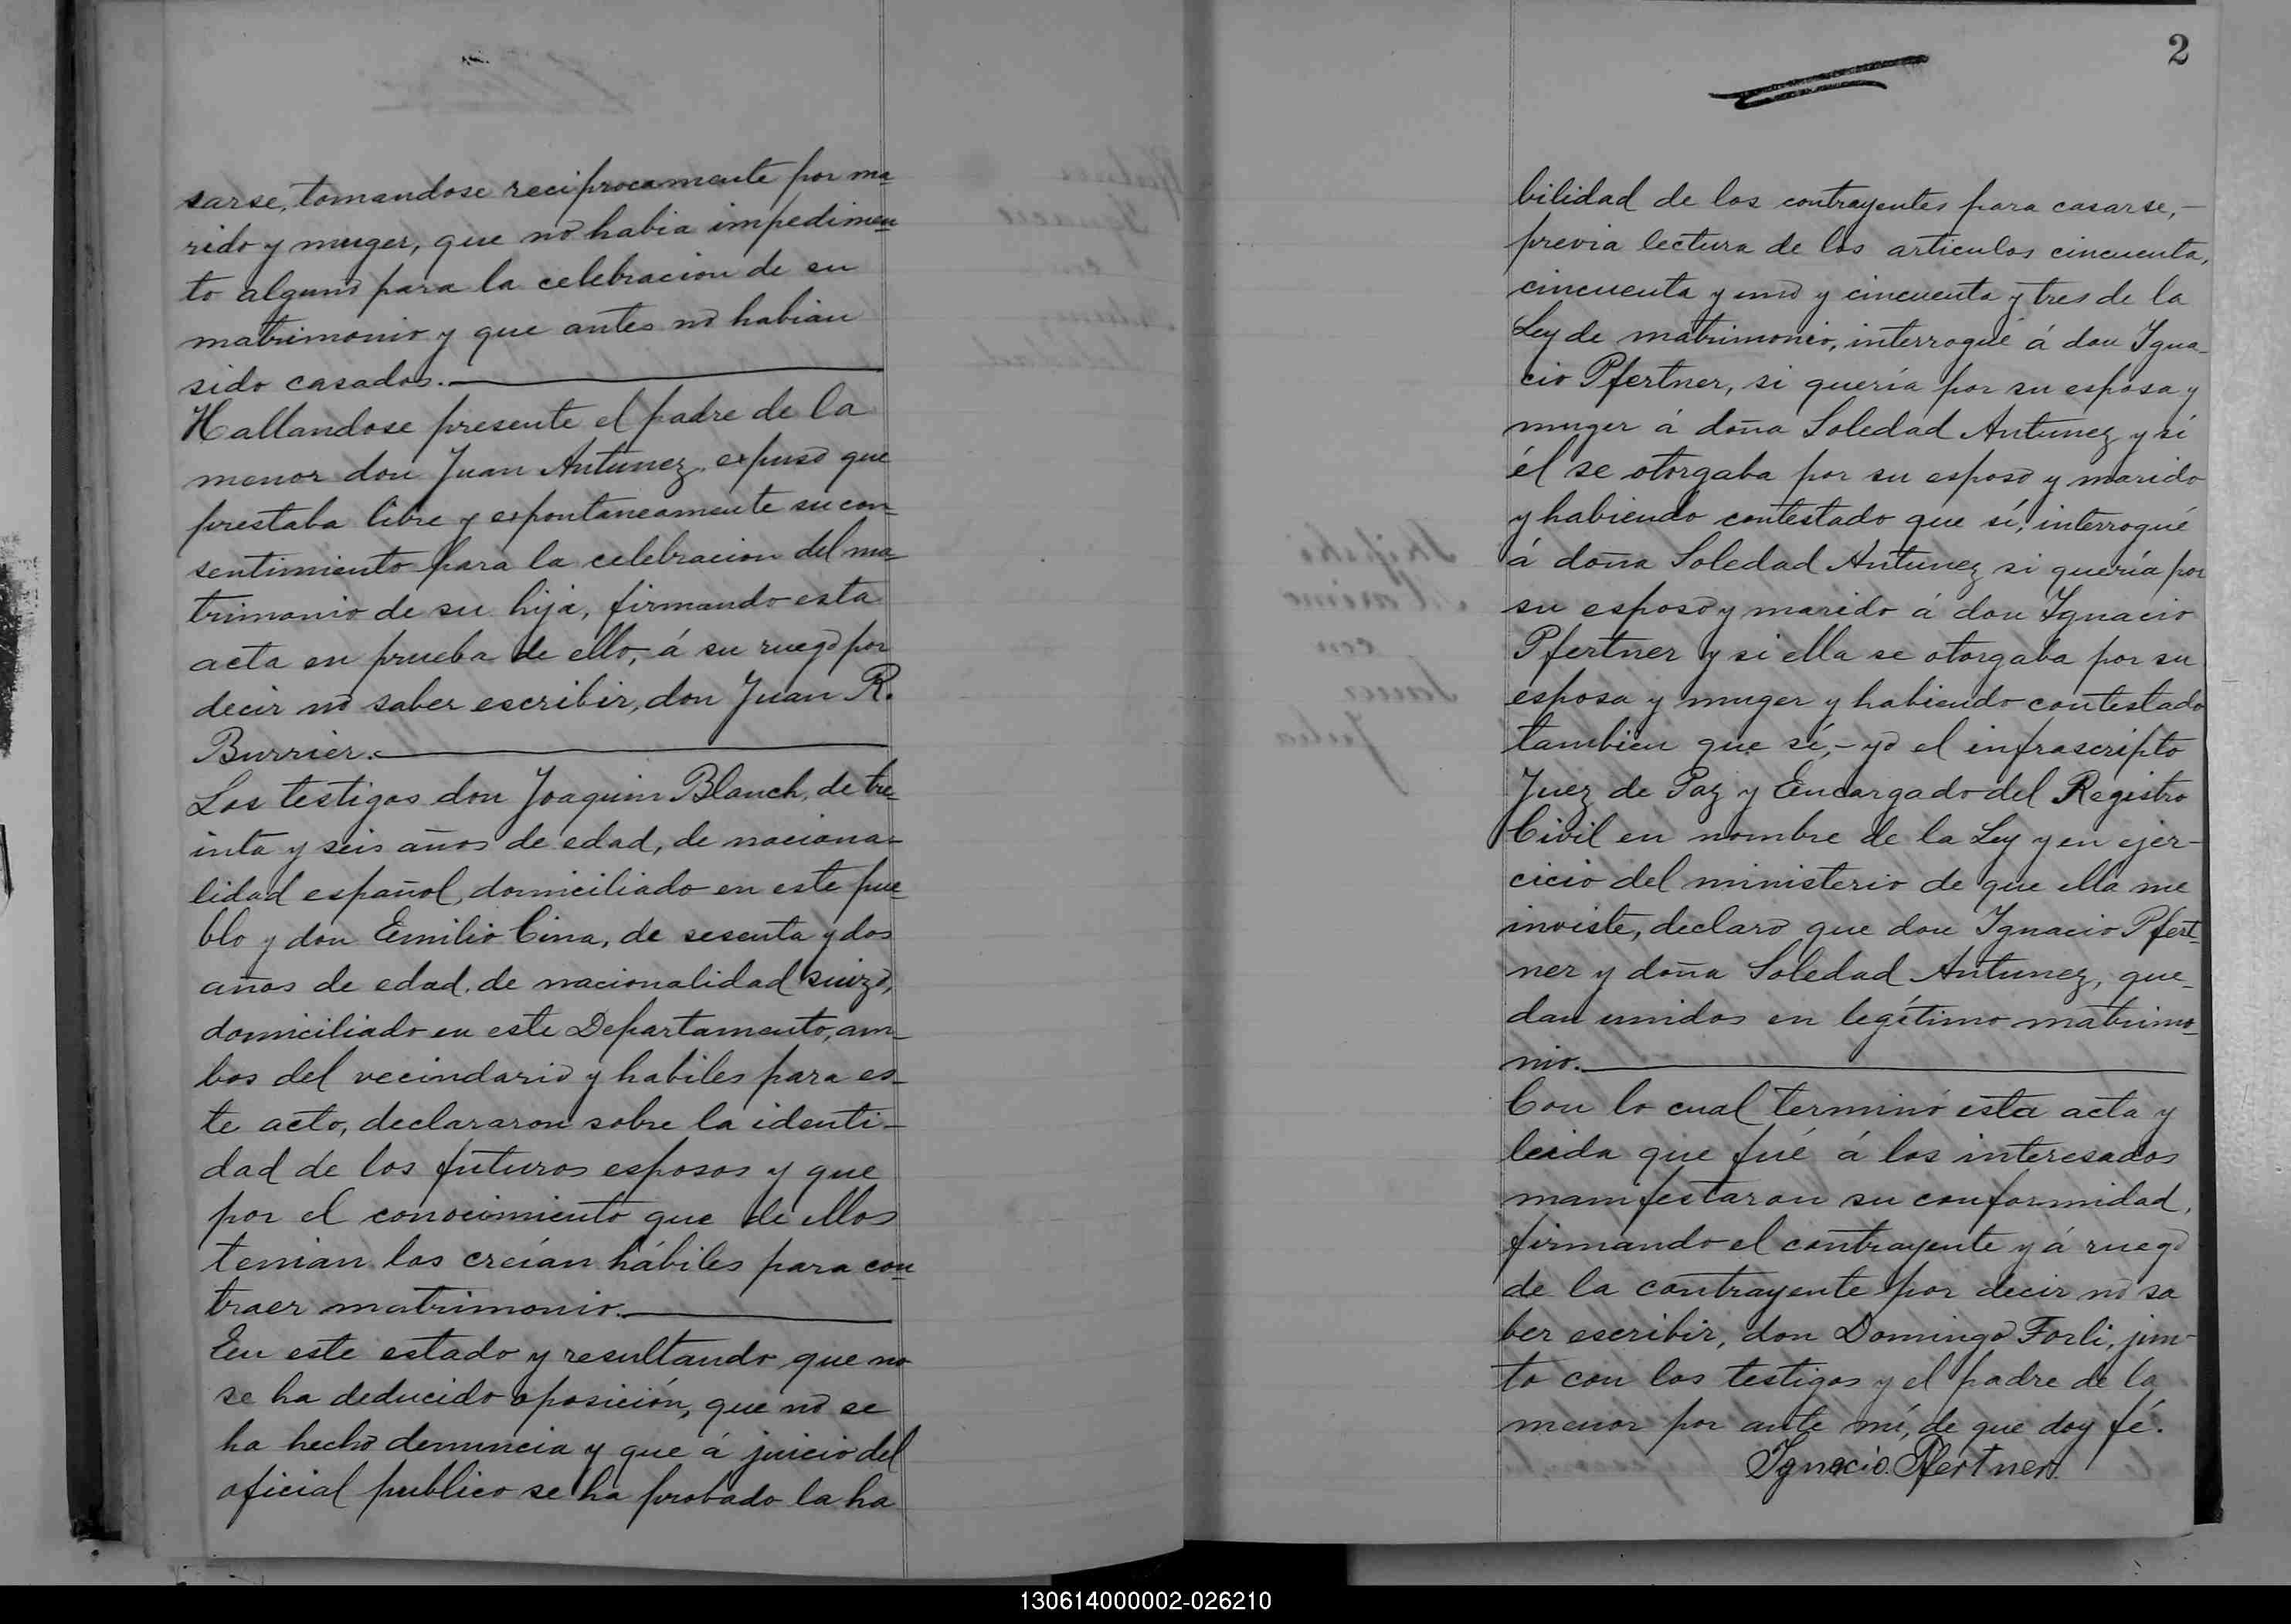 sarse, tomandose reciprocamente por ma
rido y muger, que no habia impedimen
to alguno para la celebracion de su
matrimonio y que antes no habian
sido casados.
Hallandose presente el padre de la
menor don Juan Antunez, expuso que
prestaba libre y espontaneamente su con-
sentimiento para la celebracion del ma-
trimonio de su hija, firmando esta
acta en prueba de ello, á su ruego por
decir no saber escribir, don Juan R.
Burrier.
Los testigos don Joaquin Blanch, de tre-
inta y seis años de edad, de naciona-
lidad español, domiciliado en este pue-
blo y don Emilio Cina, de sesenta y dos
años de edad, de nacionalidad suizo,
domiciliado en este Departamento, am-
bos del vecindario y habiles para es-
te acto, declararon sobre la identi-
dad de los futuros esposos y que
por el conocimiento que de ellos
tenian los creían hábiles para con
traer matrimonio.
En este estado y resultando que no
se ha deducido oposición, que no se
ha hecho denuncia y que á juicio del
oficial publico se ha probado la ha
2
bilidad de los contrayentes para casarse,-
previa lectura de los articulos cincuenta,
cincuenta y uno y cincuenta y tres de la
Ley de matrimonio, interrogué á don Igna-
cio Pfertner, si quería por su esposa y
muger á doña Soledad Antunez y si
él se otorgaba por su esposo y marido
y habiendo contestado que sí, interrogué
á doña Soledad Antunez si quería por
su esposo y marido á don Ignacio
Pfertner y si ella se otorgaba por su
esposa y muger y habiendo contestado
tambien que sí,- yo el infrascripto
Juez de Paz y Encargado del Registro
Civil en nombre de la Ley y en ejer-
cicio del ministerio de que ella me
inviste, declaro que don Ignacio Pfert-
ner y doña Soledad Antunez, que-
dan unidos en legítimo matrimo-
nio.
Con lo cual terminó esta acta y
leida que fué á los interesados
manifestaron su conformidad,
firmando el contrayente y á ruego
de la contrayente por decir no sa
ber escribir, don Domingo Forli, jun-
to con los testigos y el padre de la
menor por ante mí, de que doy fé.
Ignacio Pfertner.
130614000002-026210